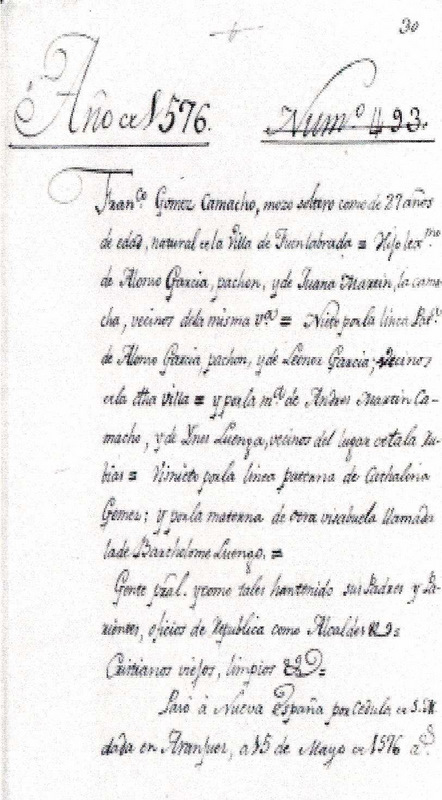 30
Año de 1576. Num.º 493.
Fran.co Gomez Camacho, mozo soltero como de 27 años
de edad, natural de la Villa de Fuenlabrada = Hijo lex.mo
de Alonso Garcia, pachon, y de Juana Martin, la cama
cha, vecinos dela misma v.a = Nieto por la linea Pat.a
de Alonso Garcia pachon, y de Leonor Garcia; vecinos
de la dha villa = y por la m.a de Andres Martin Ca-
macho, y de Ynes Luenga, vecinos del lugar de
bias = Visnieto por la linea paterna de Cathalina
Gomez: y por la materna de otra visabuela llamada
lade Bartholome Luengo. =
Gente pral. y como tales han tenido sus Padres y Pa-
rientes, oficios de Republica como Alcaldes &.=
Cristianos viejos, limpios &.=
Pasó á Nueva España por Cedula de S.M.
dada en Aranjuez, a 15 de Mayo de 1576 a.s